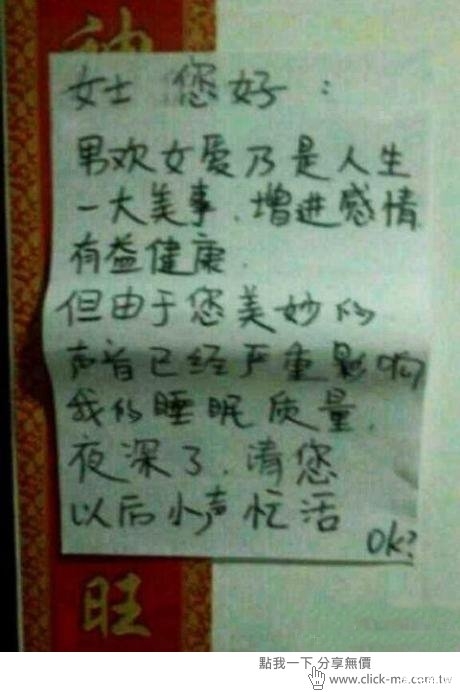 神
女士 您好：
男欢女爱乃是人生
一大美事、增进感情
有益健康.
但由于您美妙的
声音已经严重影响
我的睡眠质量.
夜深了.请您
以后小声忙活
OK?
旺
點我一下 分享無價
www.click-me.com.tw